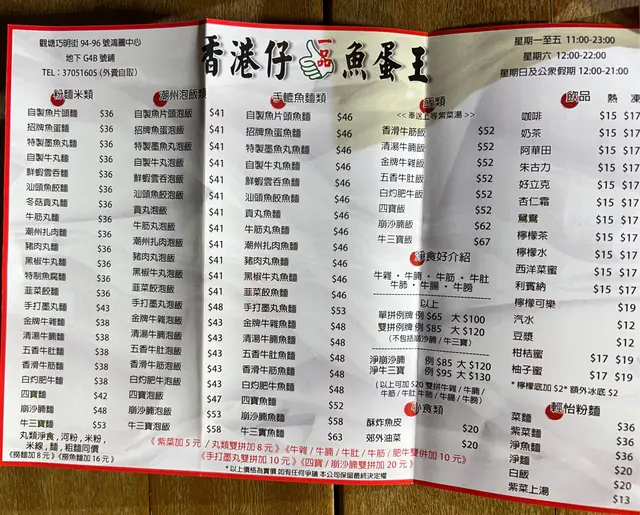 觀塘巧明街 94-96 號鴻圖中心
地下 G4B 號鋪
TEL：37051605 (外賣自取)
香港仔 一品 魚蛋王
星期一至五 11:00-23:00
星期六 12:00-22:00
星期日及公眾假期 12:00-21:00
粉麵米類
自製魚片頭麵 $36
招牌魚蛋麵 $36
特製墨魚丸麵 $36
自製牛丸麵 $36
鮮蝦雲吞麵 $36
汕頭魚餃麵 $36
冬菇貢丸麵 $36
牛筋丸麵 $36
潮州扎肉麵 $36
豬肉丸麵 $36
黑椒牛丸麵 $36
特制魚腐麵 $36
韮菜餃麵 $36
手打墨丸麵 $43
金牌牛雜麵 $38
清湯牛腩麵 $38
五香牛肚麵 $38
香滑牛筋麵 $38
白灼肥牛麵 $38
四寶麵 $42
崩沙腩麵 $48
牛三寶麵 $53
丸類淨食,河粉,米粉,
米線,麵,粗麵同價
《撈麵加 8 元》《撈魚麵加 16 元》
潮州泡飯類
自製魚片頭泡飯 $41
招牌魚蛋泡飯 $41
特製墨丸泡飯 $41
自製牛丸泡飯 $41
鮮蝦雲吞泡飯 $41
汕頭魚餃泡飯 $41
貢丸泡飯 $41
牛筋丸泡飯 $41
潮州扎肉泡飯 $41
豬肉丸泡飯 $41
黑椒牛丸泡飯 $41
韮菜餃泡飯 $41
手打墨丸泡飯 $48
金牌牛雜泡飯 $43
清湯牛腩泡飯 $43
五香牛肚泡飯 $43
香滑牛筋泡飯 $43
白灼肥牛泡飯 $43
四寶泡飯 $47
崩沙腩泡飯 $53
牛三寶泡飯 $58
手轆魚麵類
自製魚片頭魚麵 $46
招牌魚蛋魚麵 $46
特製墨魚丸魚麵 $46
自製牛丸魚麵 $46
鮮蝦雲吞魚麵 $46
汕頭魚餃魚麵 $46
貢丸魚麵 $46
牛筋丸魚麵 $46
潮州扎肉魚麵 $46
豬肉丸魚麵 $46
黑椒牛丸魚麵 $46
韮菜餃魚麵 $46
手打墨丸魚麵 $53
金牌牛雜魚麵 $48
清湯牛腩魚麵 $48
五香牛肚魚麵 $48
香滑牛筋魚麵 $48
白灼肥牛魚麵 $48
四寶魚麵 $52
崩沙腩魚麵 $58
牛三寶魚麵 $63
飯類
<< 奉送上等紫菜湯 >>
香滑牛筋飯 $52
清湯牛腩飯 $52
金牌牛雜飯 $52
五香牛肚飯 $52
白灼肥牛飯 $52
四寶飯 $52
崩沙腩飯 $62
牛三寶飯 $67
淨食好介紹
牛雜・牛腩・牛筋・牛肚
牛肺・牛腸・牛膀
以上
單拼例牌 $65 大 $100
雙拼例牌 $85 大 $120
(不包括崩沙腩/ 牛三寶)
淨崩沙腩 例 $85 大 $120
淨牛三寶 例 $95 大 $130
(以上可加 $20 雙拼牛雜/ 牛腩/
牛筋/ 牛肚/ 牛肺/ 牛腸/ 牛膀)
小食類
酥炸魚皮 $20
郊外油菜 $20
飲品 熱 凍
咖啡 $15 $17
奶茶 $15 $17
阿華田 $15 $17
朱古力 $15 $17
好立克 $15 $17
杏仁霜 $15 $17
鴛鴦 $15 $17
檸檬茶 $15 $17
檸檬水 $15 $17
西洋菜蜜 $15 $17
利賓納 $15 $17
檸檬可樂 $19
汽水 $12
豆漿 $12
柑桔蜜 $17 $19
柚子蜜 $17 $19
* 檸檬底加 $2* 額外冰底 $2
輕怡粉麵
菜麵 $36
紫菜麵 $36
淨魚麵 $36
淨麵 $20
白飯 $20
紫菜上湯 $13
《 紫菜加 5 元 / 丸類雙拼加 8 元 》《牛雜 / 牛腩 / 牛肚 / 牛筋 / 肥牛雙併加 10 元 》
《手打墨丸雙拼加 10 元 》《四寶 / 崩沙腩雙拼加 20 元 》
* 以上價格為實價 如有任何爭議 本公司保留最終決定權